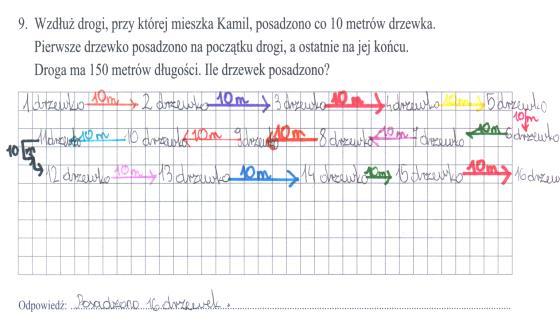 9. Wzdłuż drogi, przy której mieszka Kamil, posadzono co 10 metrów drzewka.
Pierwsze drzewko posadzono na początku drogi, a ostatnie na jej końcu.
Droga ma 150 metrów długości. Ile drzewek posadzono?
1 drzewko 10m 2 drzewko 10m 3 drzewko 10m 4 drzewko 10m 5 drzewko
10m
11 drzewko 10m 10 drzewko 10m 9 drzewko 10m 8 drzewko 10m 7 drzewko 10m 6 drzewko
10 m
12 drzewko 10m 13 drzewko 10m 14 drzewko 10m 15 drzewko 10m 16 drzew
Odpowiedź: Posadzono 16 drzewek.